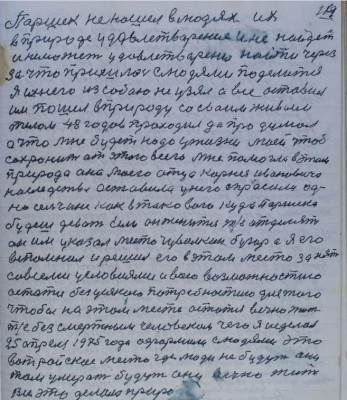 119
Паршек не нашел в людях их
в природе удовлетварение и не найдет
и не может удовлетварено найти через
за что пришлос с людями поделится
Я ихнего из собою не узял а все оставил
им пошел в природу со своим живым
телом 48 годов проходил да продумал
а что мне будет надо у жизни моей чтоб
сохранит от этого всего мне помогли в этом
природа она моего отца Корнея ивановича
наследства оставила у него спрасили од-
но сельчане как в такового куда Паршека
будеш деват если он женится т/е отделят
он им указал место чувилкин бугор а я его
вспомнил и решил его в этом месте занят
со всеми условиями и всего возможностию
остатся без всякого потребностию для того
чтобы на этом месте остатся вечно жит
т/е без смертним человеком чего я и сделал
25 апреля 1975 года оформили с людями это
вот райское место где люди не будут они
там умират будут они вечно жит
Все это делает приро